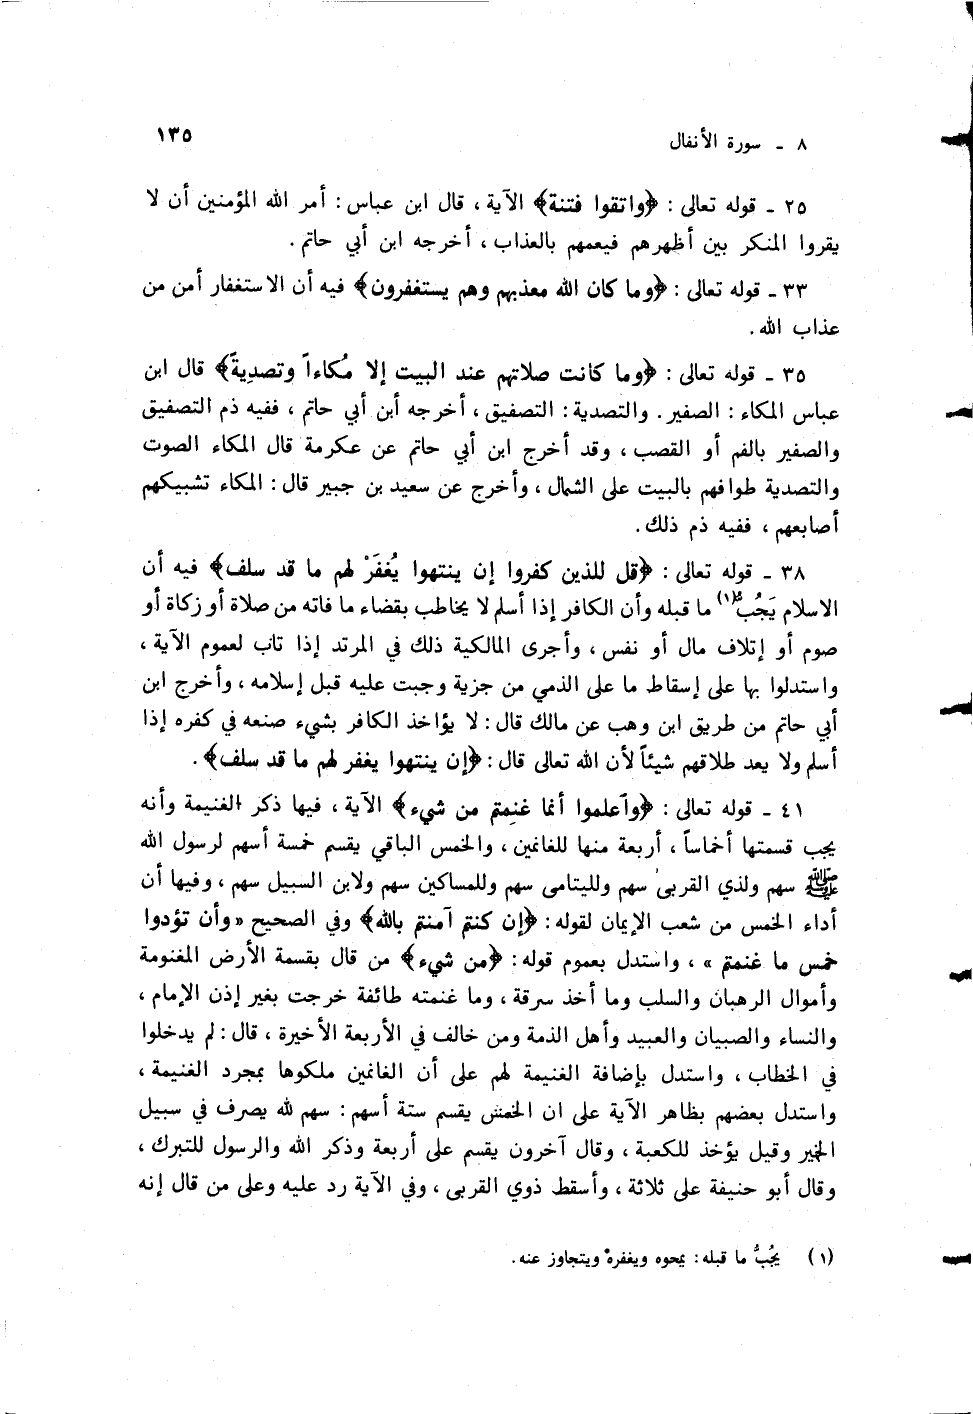 ٨ ـ سورة الأنفال ١٣٥
٢٥ ـ قوله تعالى : ﴿واتقوا فتنة﴾ الآية ، قال ابن عباس : أمر الله المؤمنين أن لا
يقروا المنكر بين أظهرهم فيعمهم بالعذاب ، أخرجه ابن أبي حاتم .
٣٣ ـ قوله تعالى : ﴿وما كان الله معذبهم وهم يستغفرون﴾ فيه أن الاستغفار أمن من
عذاب الله .
٣٥ ـ قوله تعالى : ﴿وما كانت صلاتهم عند البيت إلا مُكاءاً وتصدِيةً﴾ قال ابن
عباس المكاء : الصفير . والتصدية : التصفيق ، أخرجه أبن أبي حاتم ، ففيه ذم التصفيق
والصفير بالفم أو القصب ، وقد أخرج ابن أبي حاتم عن عكرمة قال المكاء الصوت
والتصدية طوافهم بالبيت على الشمال ، وأخرج عن سعيد بن جبير قال : المكاء تشبيكهم
أصابعهم ، ففيه ذم ذلك .
٣٨ ـ قوله تعالى : ﴿قل للذين كفروا إن ينتهوا يُغفَرْ لهم ما قد سلف﴾ فيه أن
الاسلام يَجُبُّ(١) ما قبله وأن الكافر إذا أسلم لا يخاطب بقضاء ما فاته من صلاة أو زكاة أو
صوم أو إتلاف مال أو نفس ، وأجرى المالكية ذلك في المرتد إذا تاب لعموم الآية ،
واستدلوا بها على إسقاط ما على الذمي من جزية وجبت عليه قبل إسلامه ، وأخرج ابن
أبي حاتم من طريق ابن وهب عن مالك قال : لا يؤاخذ الكافر بشيء صنعه في كفره إذا
أسلم ولا يعد طلاقهم شيئاً لأن الله تعالى قال : ﴿إن ينتهوا يغفر لهم ما قد سلف﴾ .
٤١ ـ قوله تعالى : ﴿وأعلموا أنما غنِمتم من شيء﴾ الآية ، فيها ذكر الغنيمة وأنه
يجب قسمتها أخماساً ، أربعة منها للغانمين ، والخمس الباقي يقسم خمسة أسهم لرسول الله
ﷺ سهم ولذي القربى سهم ولليتامى سهم وللمساكين سهم ولابن السبيل سهم ، وفيها أن
أداء الخمس من شعب الإيمان لقوله : ﴿إن كنتم آمنتم بالله﴾ وفي الصحيح « وأن تؤدوا
خمس ما غنمتم » ، واستدل بعموم قوله : ﴿من شيء﴾ من قال بقسمة الأرض المغنومة
وأموال الرهبان والسلب وما أخذ سرقة ، وما غنمته طائفة خرجت بغير إذن الإمام ،
والنساء والصبيان والعبيد وأهل الذمة ومن خالف في الأربعة الأخيرة ، قال : لم يدخلوا
في الخطاب ، واستدل بإضافة الغنيمة لهم على أن الغانمين ملكوها بمجرد الغنيمة ،
واستدل بعضهم بظاهر الآية على ان الخمس يقسم ستة أسهم : سهم لله يصرف في سبيل
الخير وقيل يؤخذ للكعبة ، وقال آخرون يقسم على أربعة وذكر الله والرسول للتبرك ،
وقال أبو حنيفة على ثلاثة ، وأسقط ذوي القربى ، وفي الآية رد عليه وعلى من قال إنه
(١) يُجُبُّ ما قبله : يمحوه ويغفره ويتجاوز عنه .